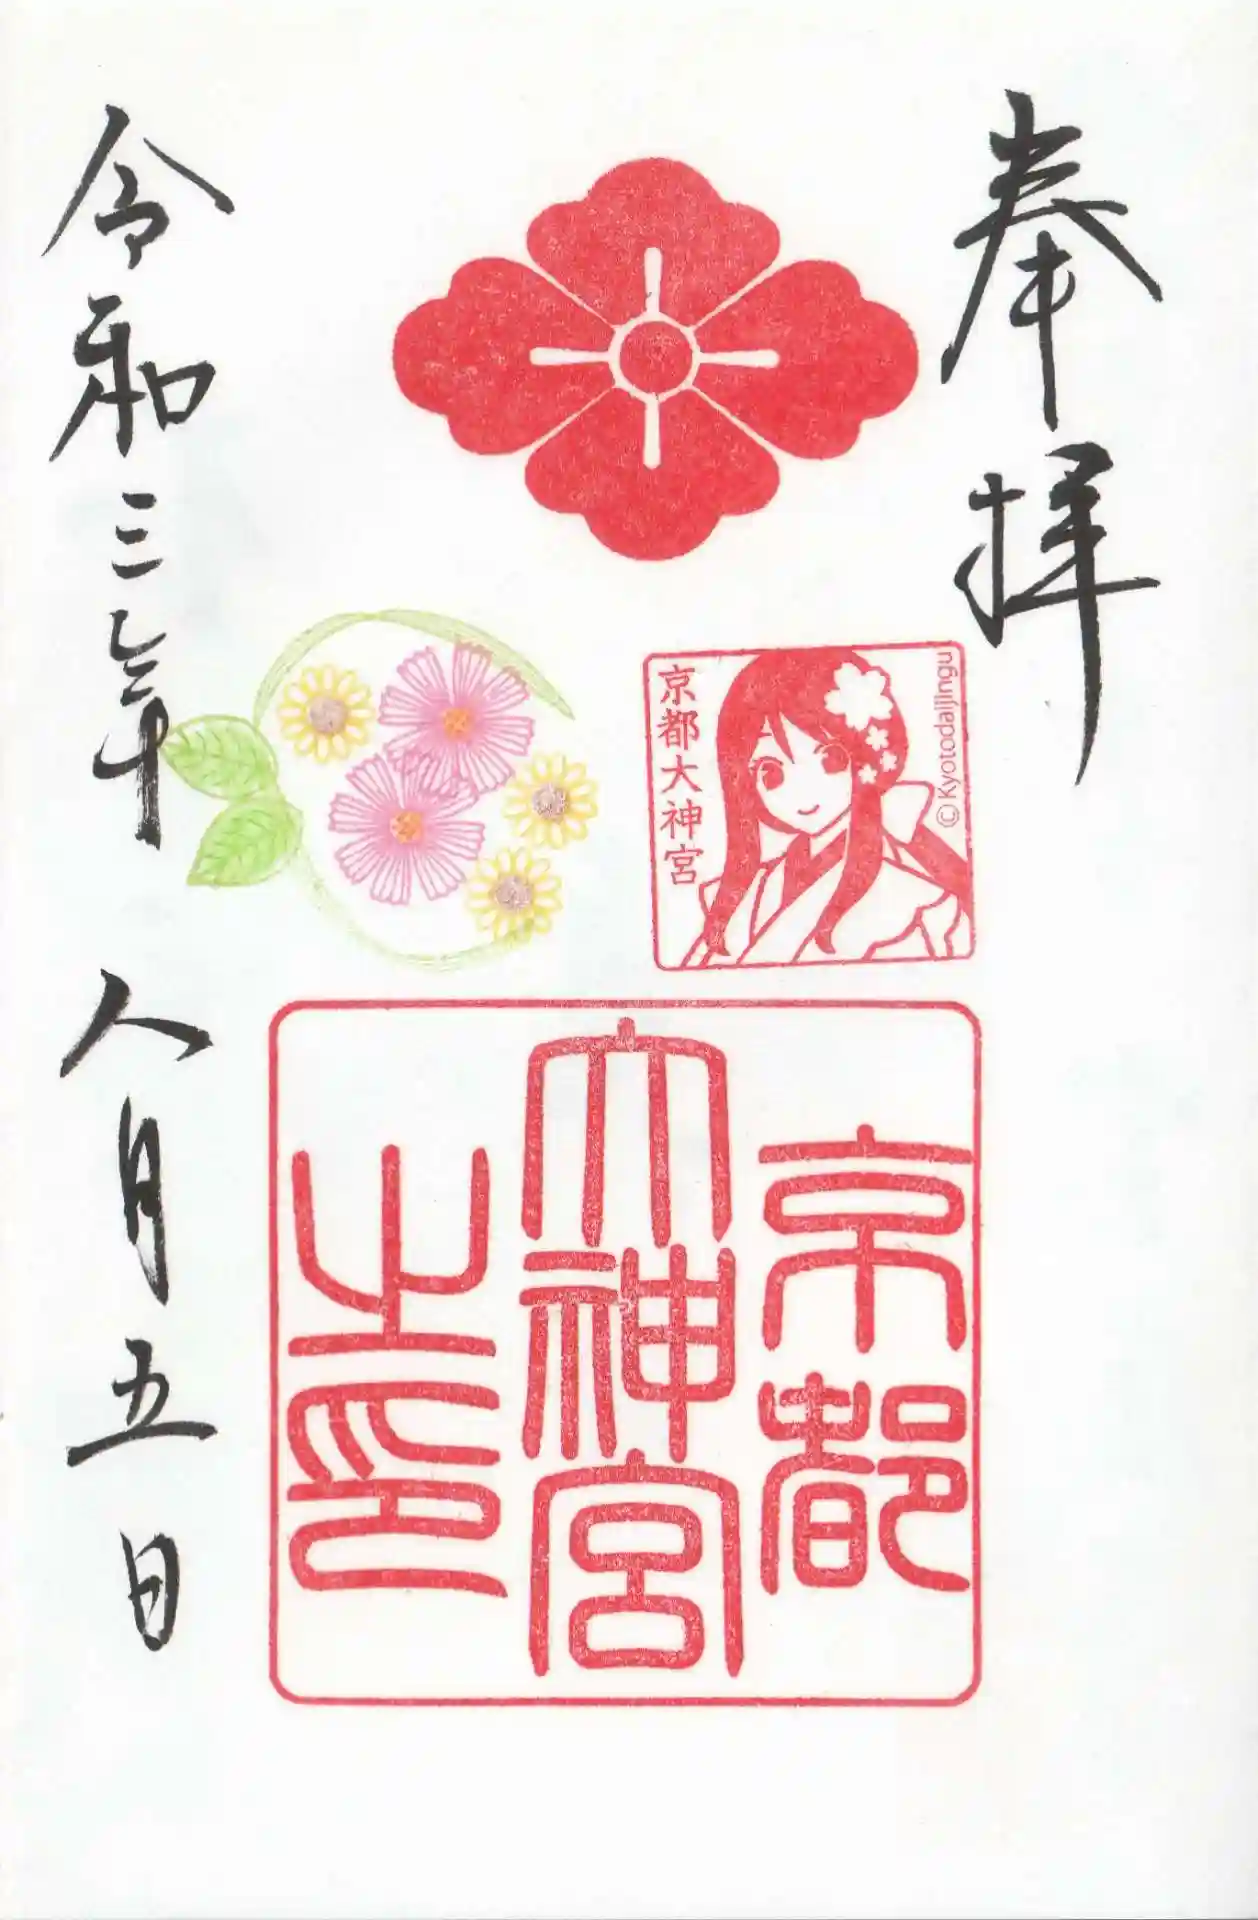 奉拝
京都大神宮
© Kyotodaijingu
京都
大神宮
之印
令和三年 八月五日